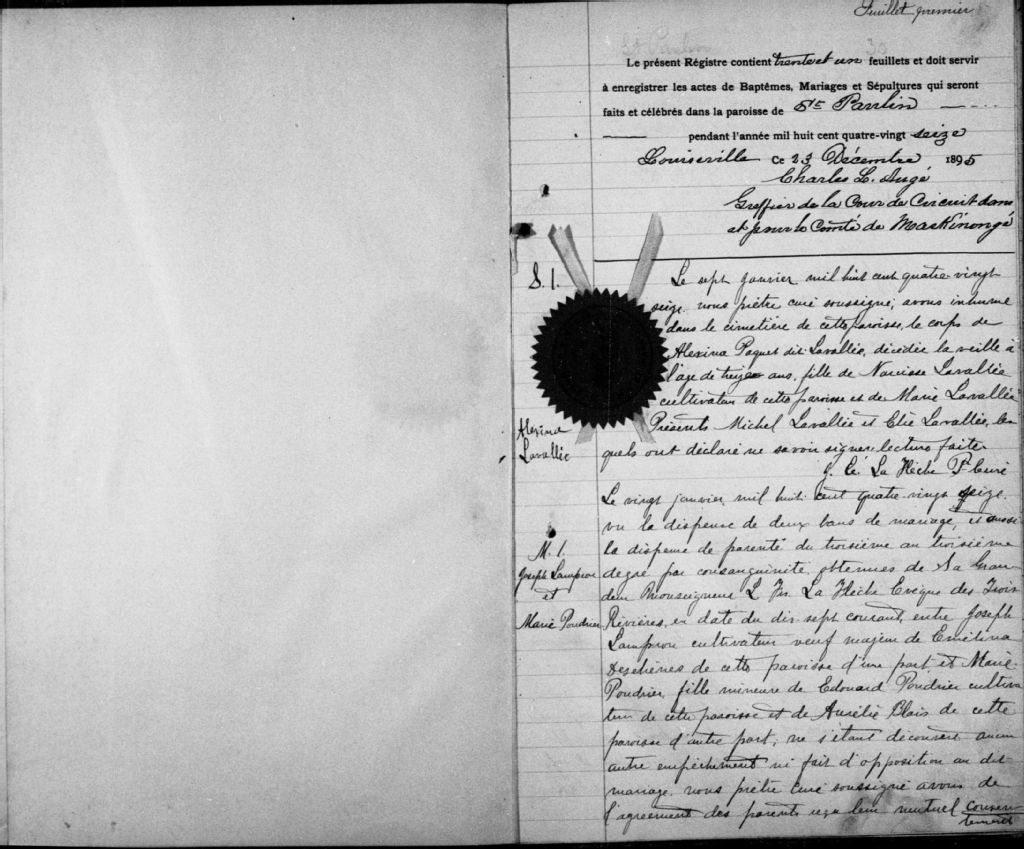 Feuillet premier
St Paulin
30
Le présent Régistre contient trente et un feuillets et doit servir
à enregistrer les actes de Baptêmes, Mariages et Sépultures qui seront
faits et célébrés dans la paroisse de St Paulin
pendant l'année mil huit cent quatre-vingt seize
Louiseville Ce 23 Décembre 1895
Charles L. Augé
Greffier de la Cour de Circuit dans
et pour le Comté de Maskinongé
S. 1.
Alexina
Lavallée
Le sept janvier mil huit cent quatre-vingt
seize, nous prêtre curé soussigné, avons inhumé
dans le cimetière de cette paroisse, le corps de
Alexina Paquet dit Lavallée, décédée la veille à
l'âge de treize ans, fille de Narcisse Lavallée
cultivateur de cette paroisse et de Marie Lavallée
Présents Michel Lavallée et Elie Lavallée, les
quels ont déclaré ne savoir signer, lecture faite
J. E. La Flèche Ptre Curé
M. 1.
Joseph Lampron
et
Marie Poudrier
Le vingt janvier, mil huit cent quatre-vingt seize,
vu la dispense de deux bans de mariage, et aussi
la dispense de parenté du troisième au troisième
degré par consanguinité, obtenues de Sa Gran
deur Monseigneur L. Fs. La Flèche Evêque des Trois
Rivières, en date du dix-sept courant, entre Joseph
Lampron cultivateur veuf majeur de Emélina
Deschênes de cette paroisse d'une part et Marie
Poudrier, fille mineure de Edouard Poudrier cultiva
teur de cette paroisse et de Aurélie Blais de cette
paroisse d'autre part; ne s'étant découvert aucun
autre empêchement ni fait d'opposition au dit
mariage, nous prêtre curé soussigné avons de
l'agreement des parents reçu leur mutuel consen
tement